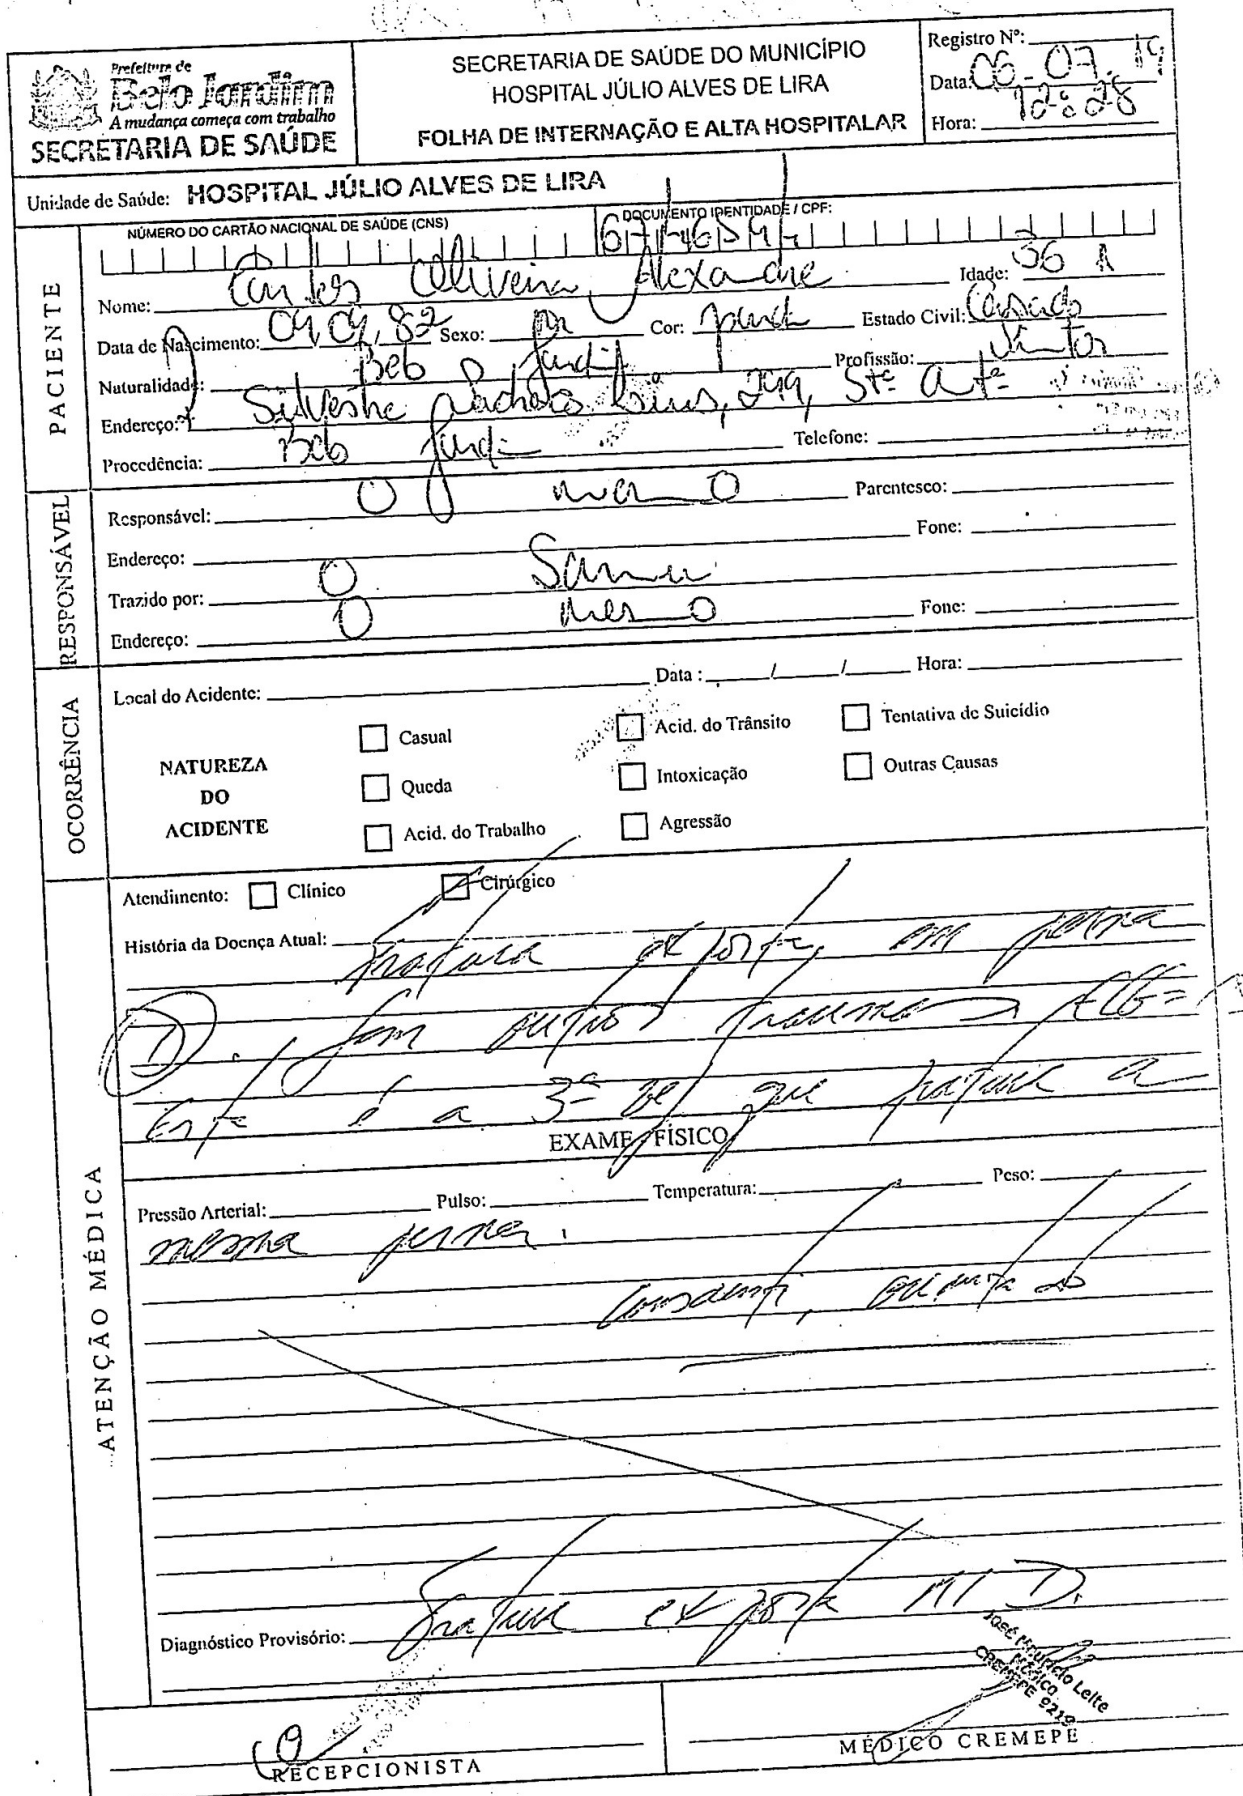 Prefeitura de
Belo Jardim
A mudança começa com trabalho
SECRETARIA DE SAÚDE
SECRETARIA DE SAÚDE DO MUNICÍPIO
HOSPITAL JÚLIO ALVES DE LIRA
FOLHA DE INTERNAÇÃO E ALTA HOSPITALAR
Registro Nº:
Data: 06.07.19
Hora: 12:28
Unidade de Saúde: HOSPITAL JÚLIO ALVES DE LIRA
PACIENTE
NÚMERO DO CARTÃO NACIONAL DE SAÚDE (CNS)
DOCUMENTO IDENTIDADE / CPF:
Nome: Oliveira Alexandre Idade: 36 A
Data de Nascimento: 04,09,82 Sexo: m Cor: parda Estado Civil: Casado
Naturalidade: Belo Jardim Profissão: Pintor
Endereço: Silvestre 299, Stº Antº
Procedência: Belo Jardim Telefone:
RESPONSÁVEL
Responsável: O mesmo Parentesco:
Endereço: Fone:
Trazido por: O Samu
Endereço: O mesmo Fone:
OCORRÊNCIA
Local do Acidente: Data : / / Hora:
NATUREZA DO ACIDENTE
Casual Acid. do Trânsito Tentativa de Suicídio
Queda Intoxicação Outras Causas
Acid. do Trabalho Agressão
ATENÇÃO MÉDICA
Atendimento: Clínico Cirúrgico
História da Doença Atual:
Fratura exposta em perna
D. Sem outros traumas
Esta é a 3ª vez que fratura a
EXAME FÍSICO
Pressão Arterial: Pulso: Temperatura: Peso:
mesma perna.
Consciente, orientado
Diagnóstico Provisório: Fratura exposta MID.
José Mauricio Leite
Médico
CREMEPE 9219
RECEPCIONISTA
MÉDICO CREMEPE